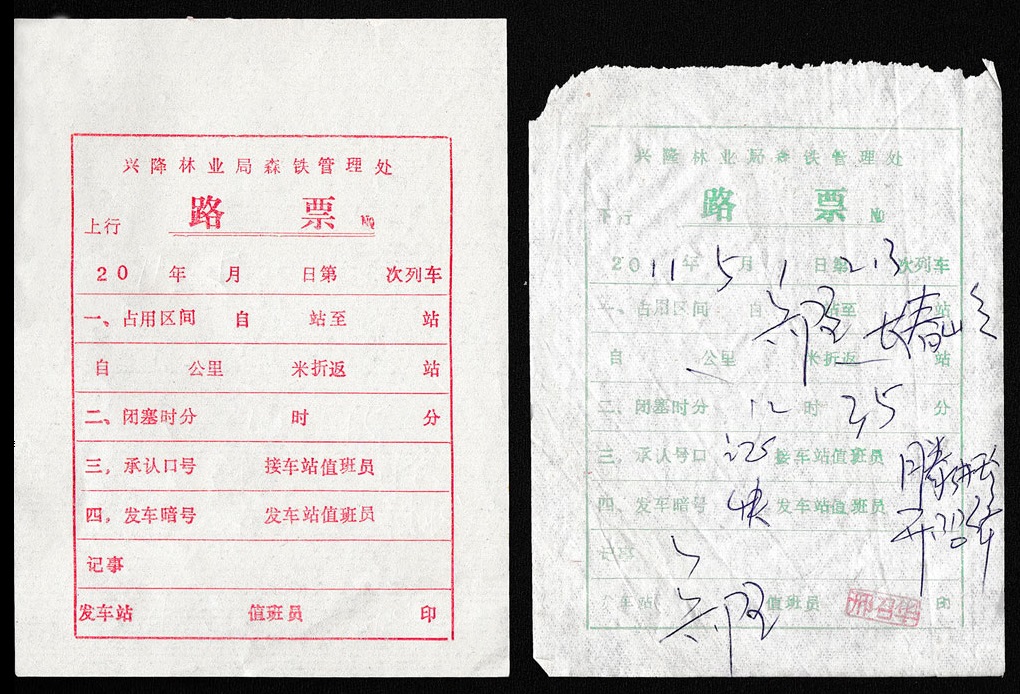 兴隆林业局森铁管理处
路 票 №
上行
20 年 月 日第 次列车
一、占用区间 自 站至 站
自 公里 米折返 站
二、闭塞时分 时 分
三，承认口号 接车站值班员
四，发车暗号 发车站值班员
记事
发车站 值班员 印
兴隆林业局森铁管理处
路 票 №
上行
2011年5月1日第213次列车
一、占用区间 自 兴隆 站至 长春山 站
自 公里 米折返 站
二、闭塞时分 12 时 25 分
三，承认号口 接车站值班员
四，发车暗号 快 发车站值班员 邢召华
记事
发车站 兴隆 值班员 邢召华 印